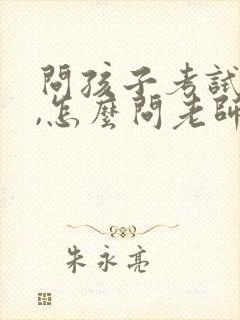 問孩子考試
,怎麼問老師
朱永亮